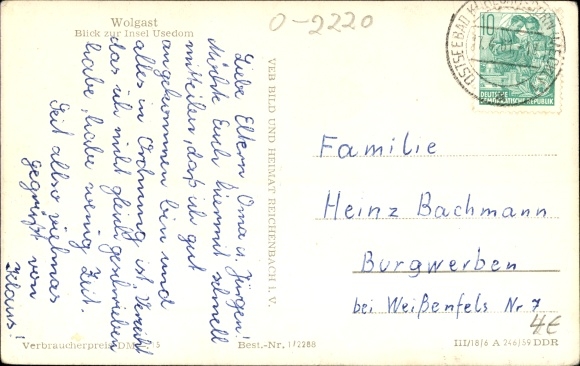 Wolgast
Blick zur Insel Usedom
O-2220
Liebe Eltern Oma u. Jürgen!
Möchte Euch hiermit schnell
mitteilen, daß ich gut
angekommen bin und
alles in Ordnung ist. Verzeiht
das ich nicht gleich geschrieben
habe, habe wenig Zeit.
Seit allso vielmas
gegrüßt von
Klaus!
VEB BILD UND HEIMAT REICHENBACH I. V.
OSTSEEBAD
10
DEUTSCHE
DEMOKRATISCHE REPUBLIK
Familie
Heinz Bachmann
Burgwerben
bei Weißenfels Nr 7
4€
Verbraucherpreis DM
Best.-Nr. 1/2288
III/18/6 A 246/59 DDR